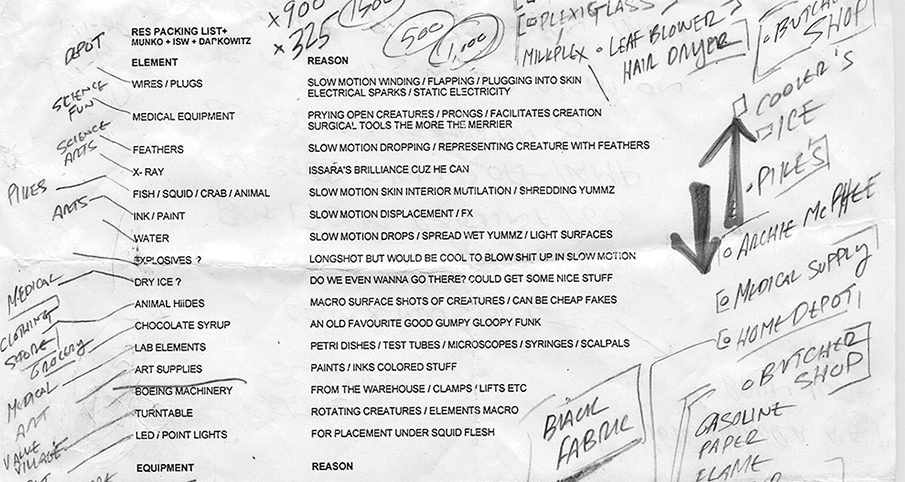 x900
1500
x325
500
1,100
PLEXIGLASS
MILKPLEX
LEAF BLOWER
HAIR DRYER
BUTCHER
SHOP
COOLER'S
ICE
PIKE'S
ARCHIE McPHEE
MEDICAL SUPPLY
HOME DEPOT
BUTCHER
SHOP
GASOLINE
PAPER
FLAME
BLACK
FABRIC
DEPOT
SCIENCE
FUN
SCIENCE
ARTS
PIKES
ARTS
MEDICAL
CLOTHING
STORE
GROCERY
MEDICAL
ART
VALUE
VILLAGE
RES PACKING LIST+
MUNKO + ISW + DARKOWITZ
ELEMENT REASON
WIRES / PLUGS SLOW MOTION WINDING / FLAPPING / PLUGGING INTO SKIN
ELECTRICAL SPARKS / STATIC ELECTRICITY
MEDICAL EQUIPMENT PRYING OPEN CREATURES / PRONGS / FACILITATES CREATION
SURGICAL TOOLS THE MORE THE MERRIER
FEATHERS SLOW MOTION DROPPING / REPRESENTING CREATURE WITH FEATHERS
X- RAY ISSARA'S BRILLIANCE CUZ HE CAN
FISH / SQUID / CRAB / ANIMAL SLOW MOTION SKIN INTERIOR MUTILATION / SHREDDING YUMMZ
INK / PAINT SLOW MOTION DISPLACEMENT / FX
WATER SLOW MOTION DROPS / SPREAD WET YUMMZ / LIGHT SURFACES
EXPLOSIVES ? LONGSHOT BUT WOULD BE COOL TO BLOW SHIT UP IN SLOW MOTION
DRY ICE ? DO WE EVEN WANNA GO THERE? COULD GET SOME NICE STUFF
ANIMAL HiiDES MACRO SURFACE SHOTS OF CREATURES / CAN BE CHEAP FAKES
CHOCOLATE SYRUP AN OLD FAVOURITE GOOD GUMPY GLOOPY FUNK
LAB ELEMENTS PETRI DISHES / TEST TUBES / MICROSCOPES / SYRINGES / SCALPALS
ART SUPPLIES PAINTS / INKS COLORED STUFF
BOEING MACHINERY FROM THE WAREHOUSE / CLAMPS / LIFTS ETC
TURNTABLE ROTATING CREATURES / ELEMENTS MACRO
LED / POINT LIGHTS FOR PLACEMENT UNDER SQUID FLESH
EQUIPMENT REASON